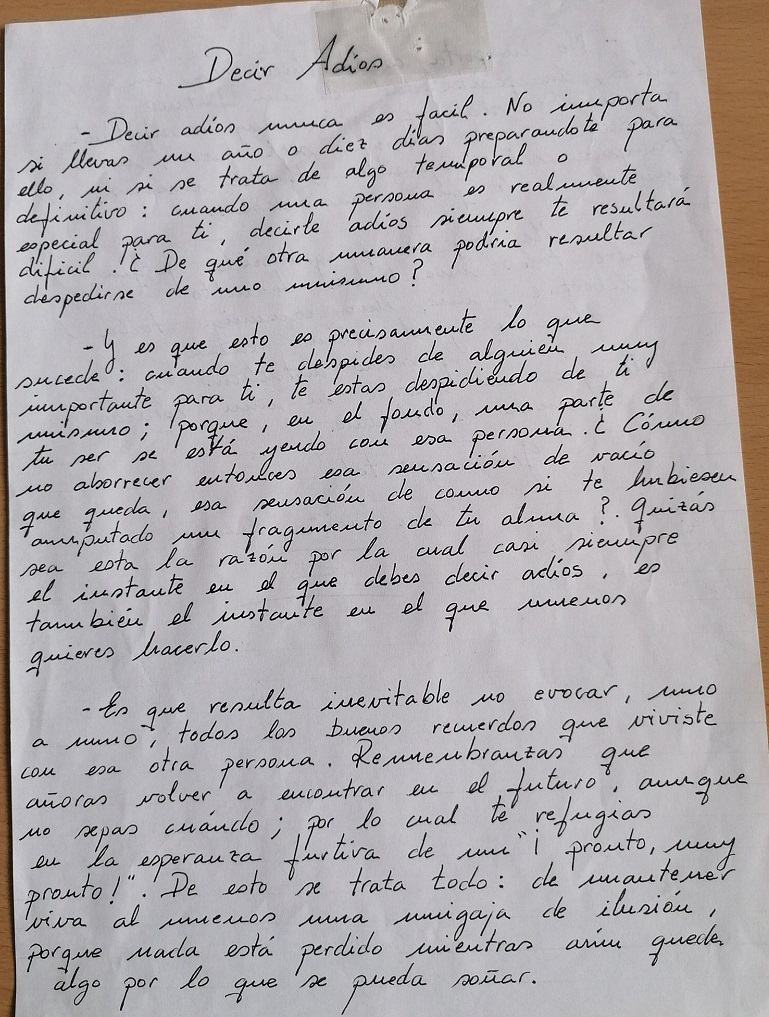 Decir Adios
- Decir adios nunca es facil. No importa
si llevas un año o diez días preparandote para
ello, ni si se trata de algo temporal o
definitivo: cuando una persona es realmente
especial para ti, decirle adios siempre te resultará
dificil. ¿ De qué otra manera podria resultar
despedirse de uno mismo?
- Y es que esto es precisamente lo que
sucede: cuando te despides de alguien muy
importante para ti, te estas despidiendo de ti
mismo; porque, en el fondo, una parte de
tu ser se está yendo con esa persona. ¿ Cómo
no aborrecer entonces esa sensación de vacío
que queda, esa sensación de como si te hubiesen
amputado un fragmento de tu alma?. Quizás
sea esta la razón por la cual casi siempre
el instante en el que debes decir adios, es
también el instante en el que menos
quieres hacerlo.
- Es que resulta inevitable no evocar, uno
a uno, todos los buenos recuerdos que viviste
con esa otra persona. Remembranzas que
añoras volver a encontrar en el futuro, aunque
no sepas cuándo; por lo cual te refugias
en la esperanza furtiva de un "¡ pronto, muy
pronto!". De esto se trata todo: de mantener
viva al menos una migaja de ilusión,
porque nada está perdido mientras aún quede
algo por lo que se pueda soñar.